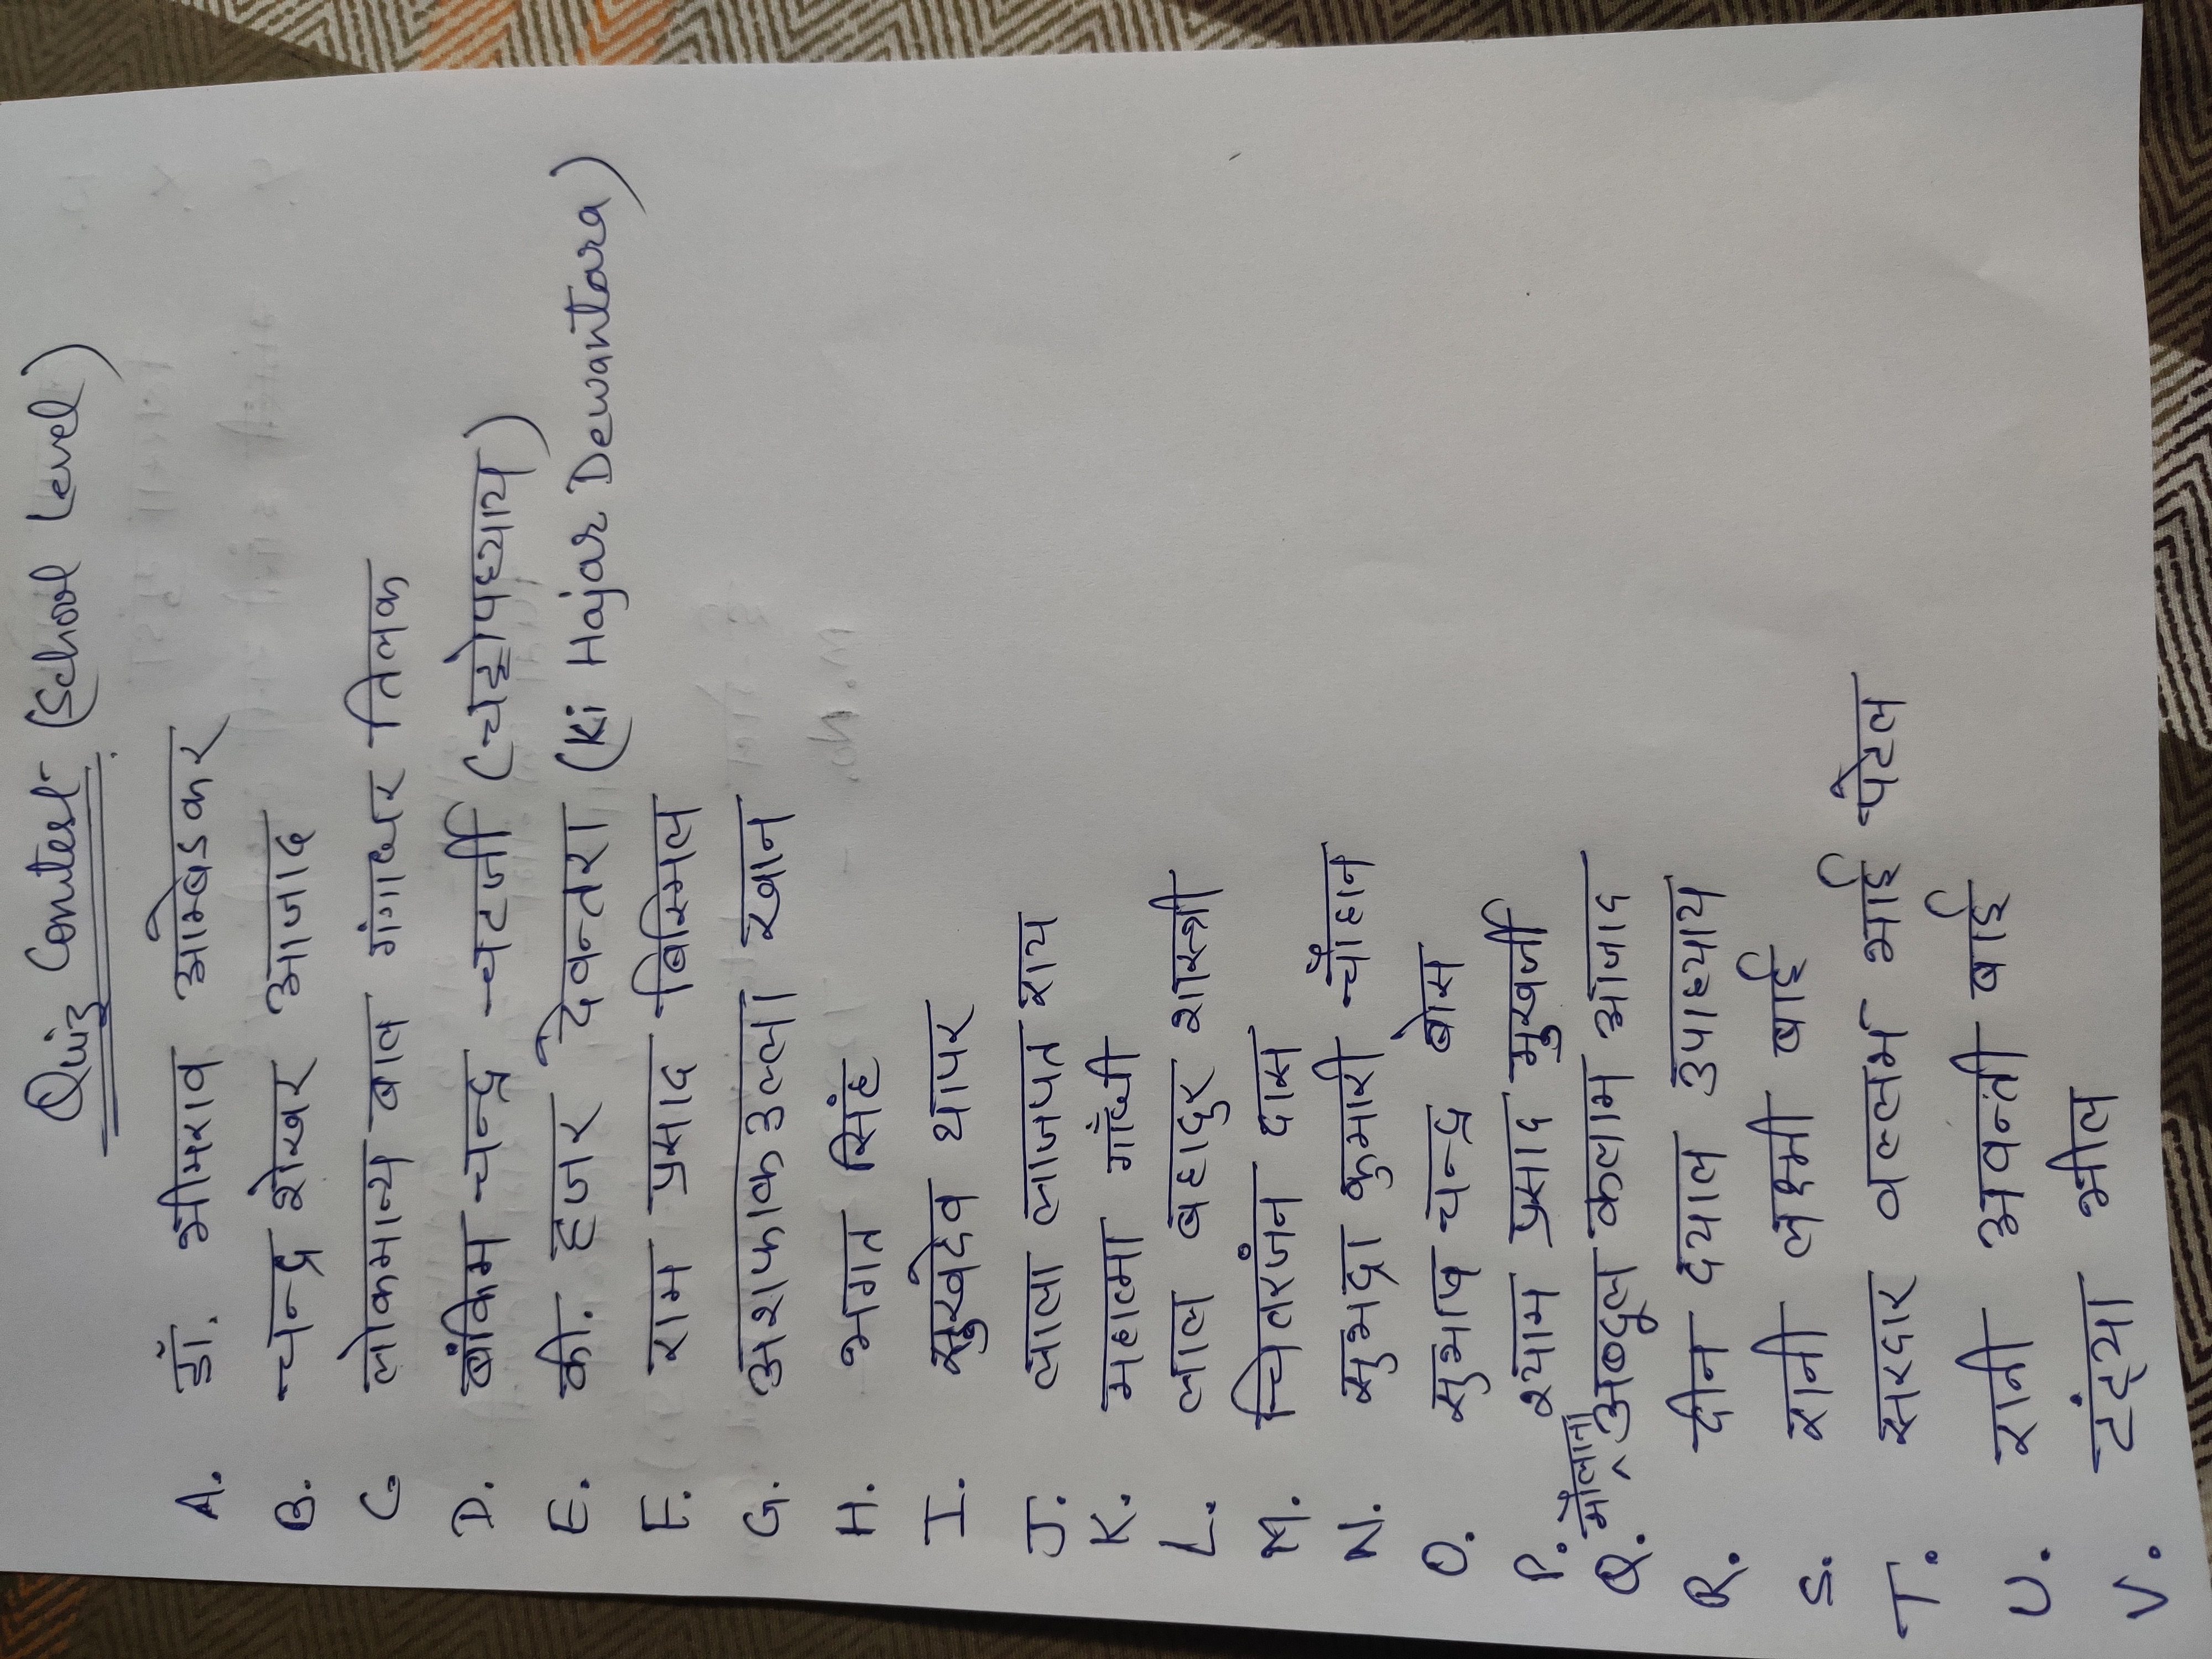 Quiz Contest (School Level)
A. डॉ. भीमराव आम्बेडकर
B. चन्द्र शेखर आजाद
C लोकमान्य बाल गंगाधर तिलक
D. बंकिम चन्द्र चटर्जी (चट्टोपध्याय)
E. की. हजर देवन्तरा (Ki Hajar Dewantara)
F. राम प्रसाद बिस्मिल
G. अशफाक उल्ला खान
H. भगत सिंह
I. सुखदेव थापर
J. लाला लाजपत राय
K. महात्मा गाँधी
L. लाल बहादुर शास्त्री
M. चितरंजन दास
N. सुभद्रा कुमारी चौहान
O. सुभाष चन्द्र बोस
P. श्याम प्रसाद मुखर्जी
Q. मौलाना अब्दुल कलाम आजाद
R. दीन दयाल उपाध्याय
S. रानी लक्ष्मी बाई
T. सरदार वल्लभ भाई पटेल
U. रानी अवन्ती बाई
V. टंट्या भील